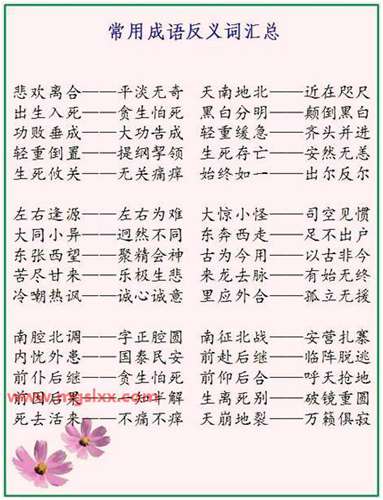 常用成语反义词汇总
悲欢离合——平淡无奇 天南地北——近在咫尺
出生入死——贪生怕死 黑白分明——颠倒黑白
功败垂成——大功告成 轻重缓急——齐头并进
轻重倒置——提纲挈领 生死存亡——安然无恙
生死攸关——无关痛痒 始终如一——出尔反尔
左右逢源——左右为难 大惊小怪——司空见惯
大同小异——迥然不同 东奔西走——足不出户
东张西望——聚精会神 古为今用——以古非今
苦尽甘来——乐极生悲 来龙去脉——有始无终
冷嘲热讽——诚心诚意 里应外合——孤立无援
南腔北调——字正腔圆 南征北战——安营扎寨
内忧外患——国泰民安 前赴后继——临阵脱逃
前仆后继——贪生怕死 前仰后合——呼天抢地
www.mgslxx.com
前因后果——一知半解 生离死别——破镜重圆
死去活来——不痛不痒 天崩地裂——万籁俱寂